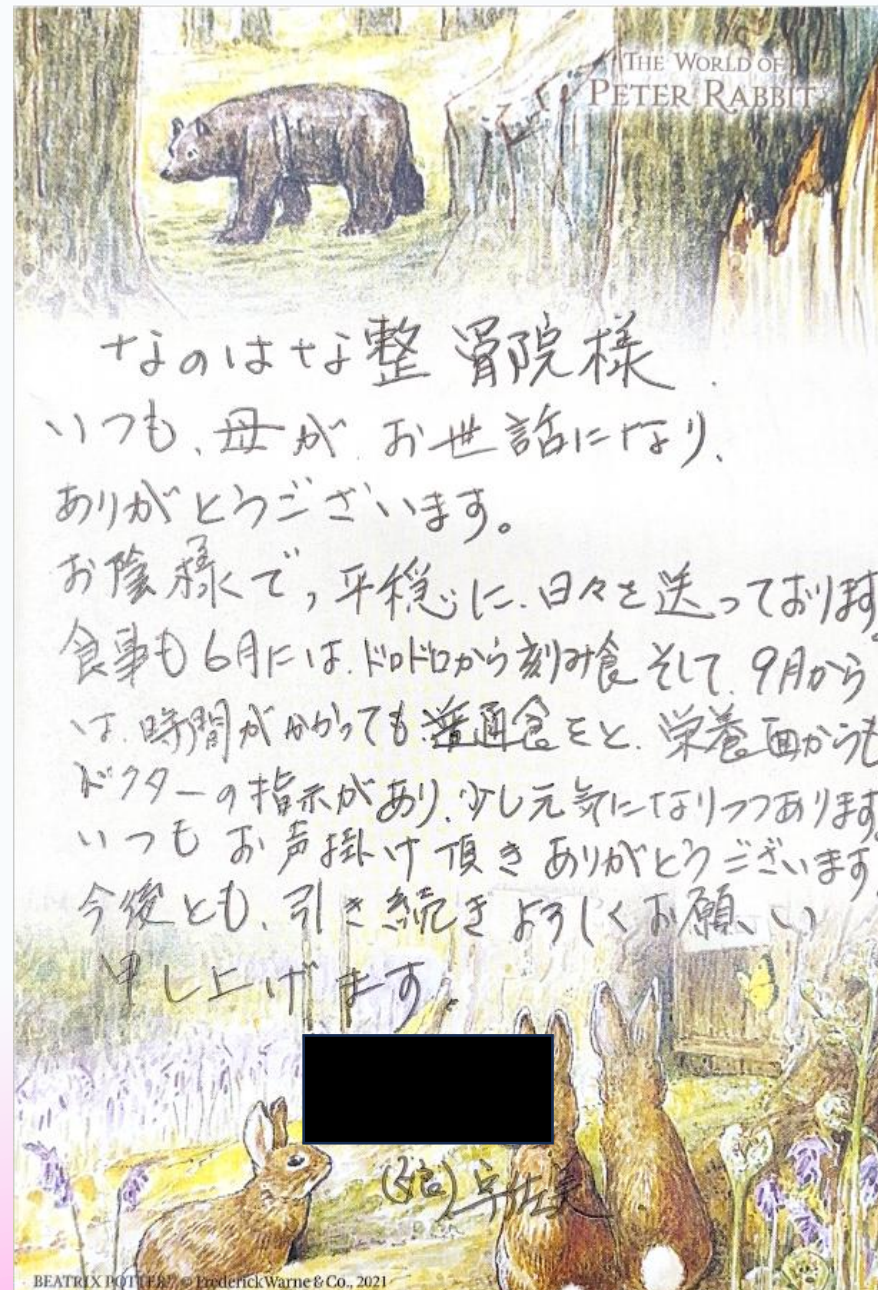 THE WORLD OF
PETER RABBIT
なのはな整骨院様
いつも、母が、お世話になり、
ありがとうございます。
お陰様で、平穏に、日々を送っております。
食事も6月には、ドロドロから刻み食そして、9月から
は、時間がかかっても普通食をと、栄養面からも
ドクターの指示があり、少し元気になりつつあります。
いつもお声掛け頂きありがとうございます。
今後とも、引き続きよろしくお願い
申し上げます。
(娘)宇佐美
BEATRIX POTTER™ © Frederick Warne & Co., 2021